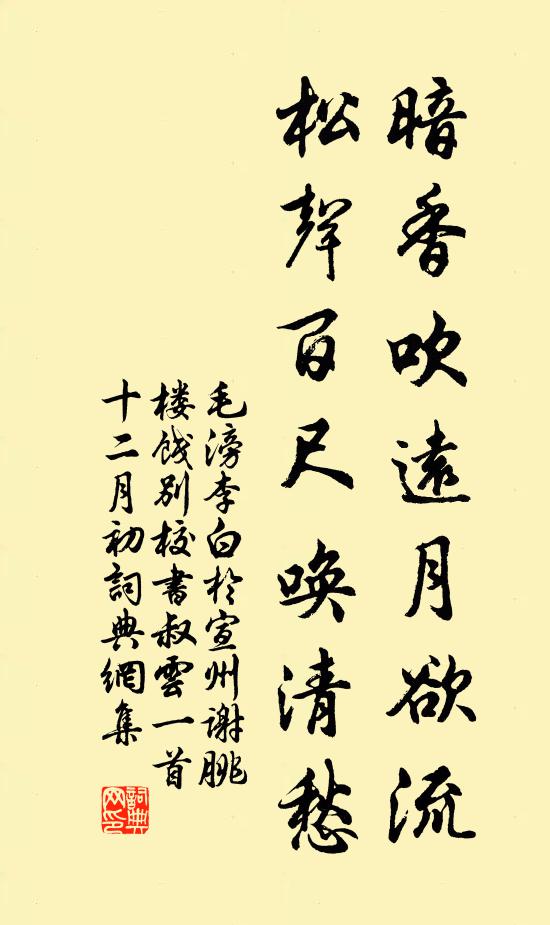 暗香吹遠月欲流
松聲百尺喚清愁
毛滂李白於宣州谢朓
楼饯别校書叔雲一首
十二月初詞典網集
詞典
网印